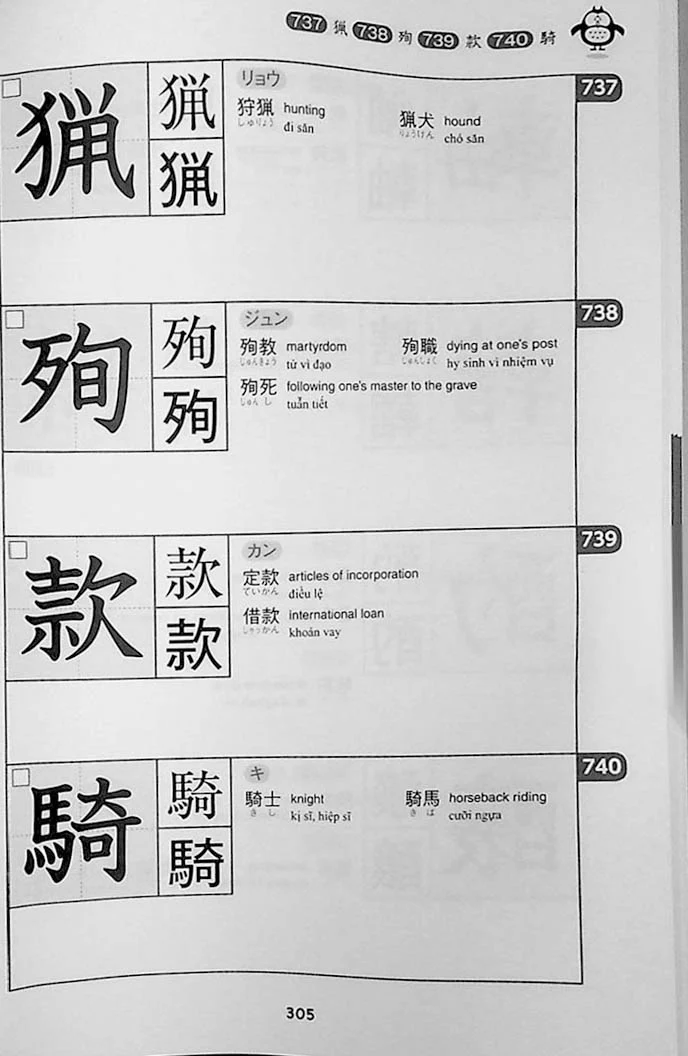 737 猟 738 殉 739 款 740 騎
737
猟 猟 猟
リョウ
狩猟 hunting
しゅりょう đi săn
猟犬 hound
りょうけん chó săn
738
殉 殉 殉
ジュン
殉教 martyrdom
じゅんきょう tử vì đạo
殉職 dying at one's post
じゅんしょく hy sinh vì nhiệm vụ
殉死 following one's master to the grave
じゅんし tuẫn tiết
739
款 款 款
カン
定款 articles of incorporation
ていかん điều lệ
借款 international loan
しゃっかん khoản vay
740
騎 騎 騎
キ
騎士 knight
きし kị sĩ, hiệp sĩ
騎馬 horseback riding
きば cưỡi ngựa
305